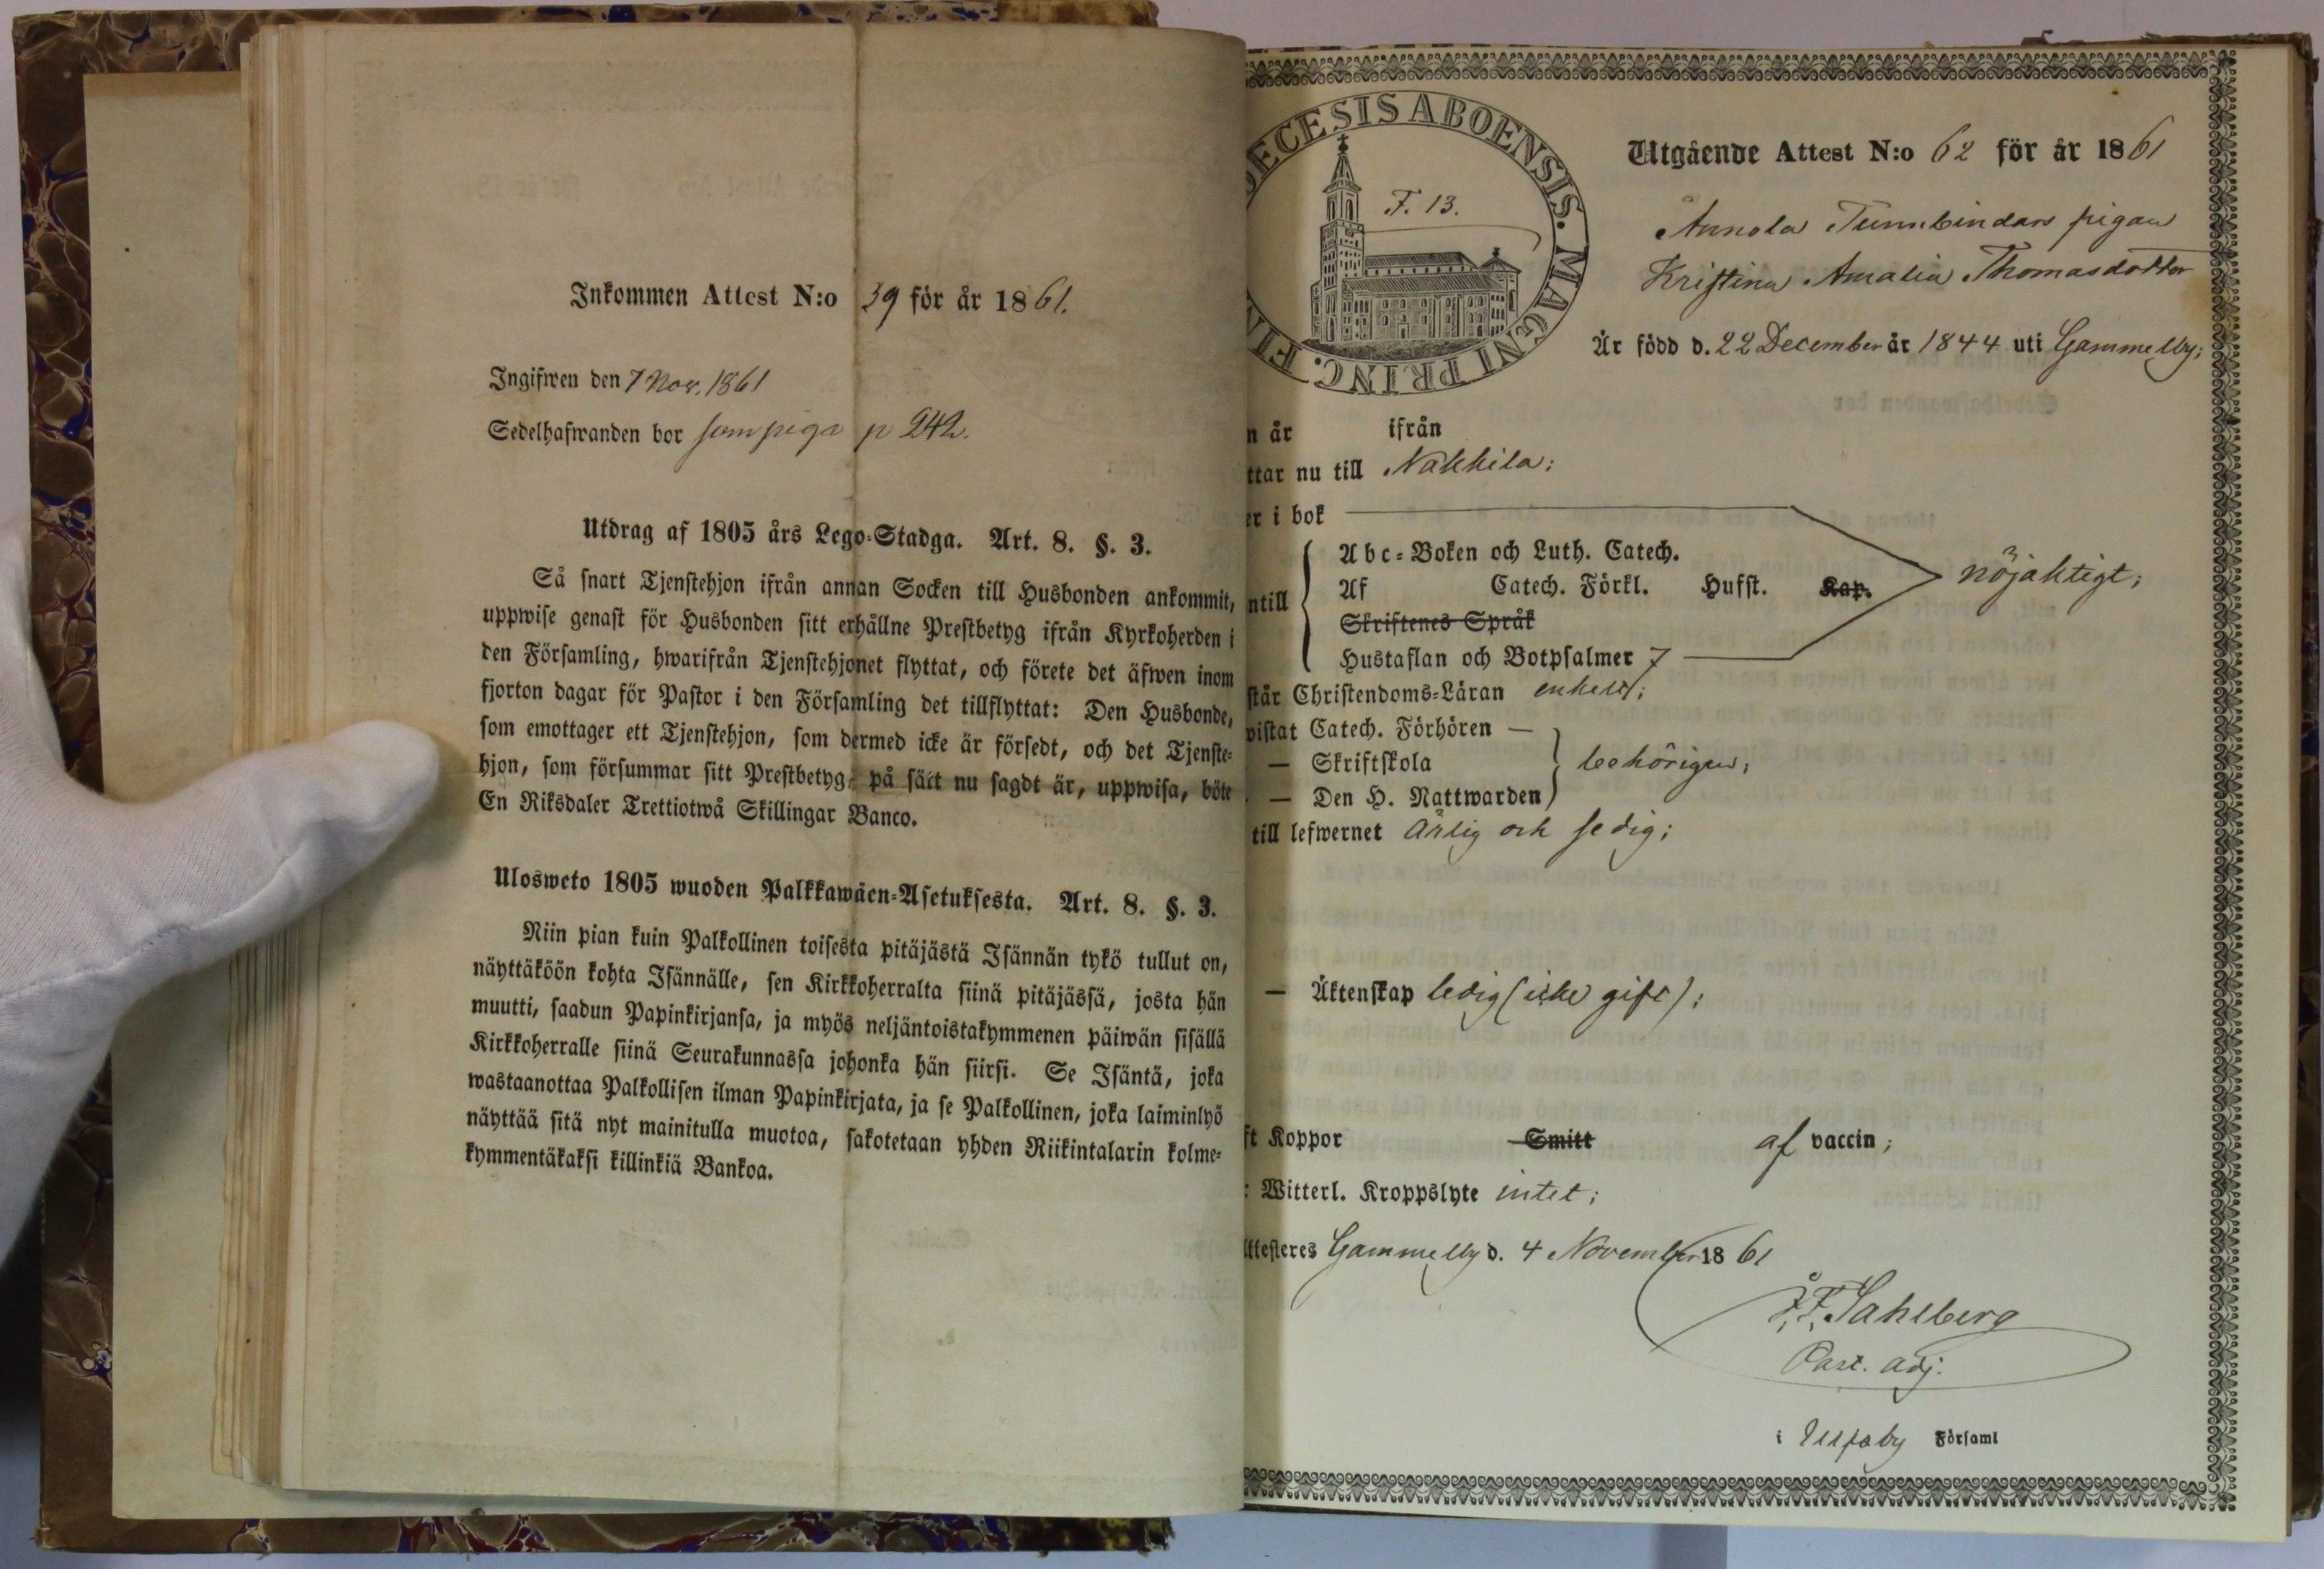 Inkommen Attest N:o 39 för år 1861.
Ingifwen den 7 Nov. 1861
Sedelhafwanden bor som piga p 242.
Utdrag af 1805 års Lego-Stadga. Art. 8. §. 3.
Så snart Tjenstehjon ifrån annan Socken till Husbonden ankommit,
uppwise genast för Husbonden sitt erhållne Prestbetyg ifrån Kyrkoherden i
den Församling, hwarifrån Tjenstehjonet flyttat, och förete det äfwen inom
fjorton dagar för Pastor i den Församling det tillflyttat: Den Husbonde,
som emottager ett Tjenstehjon, som dermed icke är försedt, och det Tjenste-
hjon, som försummar sitt Prestbetyg, på sätt nu sagdt är, uppwisa, böte
En Riksdaler Trettiotwå Skillingar Banco.
Ulosweto 1805 wuoden Palkkawäen-Asetuksesta. Art. 8. §. 3.
Niin pian kuin Palkollinen toisesta pitäjästä Isännän tykö tullut on,
näyttäköön kohta Isännälle, sen Kirkkoherralta siinä pitäjässä, josta hän
muutti, saadun Papinkirjansa, ja myös neljäntoistakymmenen päiwän sisällä
Kirkkoherralle siinä Seurakunnassa johonka hän siirsi. Se Isäntä, joka
wastaanottaa Palkollisen ilman Papinkirjata, ja se Palkollinen, joka laiminlyö
näyttää sitä nyt mainitulla muotoa, sakotetaan yhden Riikintalarin kolme-
kymmentäkaksi killinkiä Bankoa.
ECESIS ABOENSIS. MAGNI PRINC. FIN
F. 13.
Utgående Attest N:o 62 för år 1861
Annola Tunnbindars pigan
Kristina Amalia Thomasdotter
Är född d. 22 December år 1844 uti Gammelby;
n år ifrån
ttar nu till Nakkila;
er i bok
Abc-Boken och Luth. Catech.
ntill Af Catech. Förkl. Husst. Kap. nöjaktigt;
Skriftenes Språk
Hustaflan och Botpsalmer 7
står Christendoms-Läran enkelt;
vistat Catech. Förhören —
— Skriftskola behörigen;
— Den H. Nattwarden
till lefwernet ärlig och sedig;
— Äktenskap ledig (icke gift);
ft Koppor Smitt af vaccin;
: Witterl. Kroppslyte intet;
ttesteres Gammelby d. 4 November 1861
F. Sahlberg
Past. adj.
i Ulfsby Församl